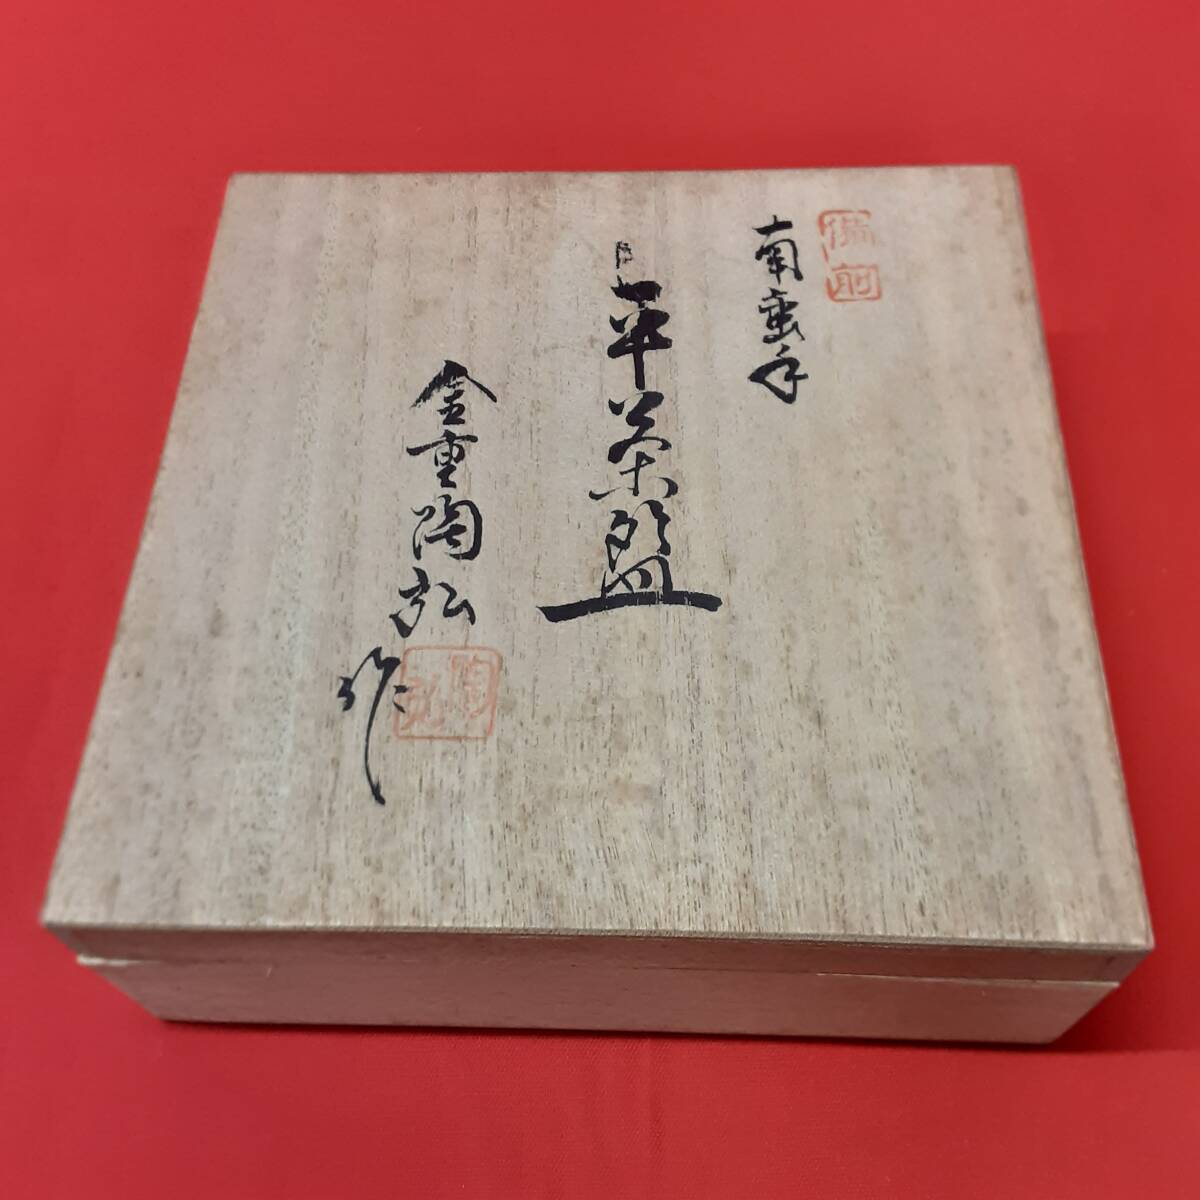 備前
南蛮手
平茶盌
金重陶弘
作
陶弘